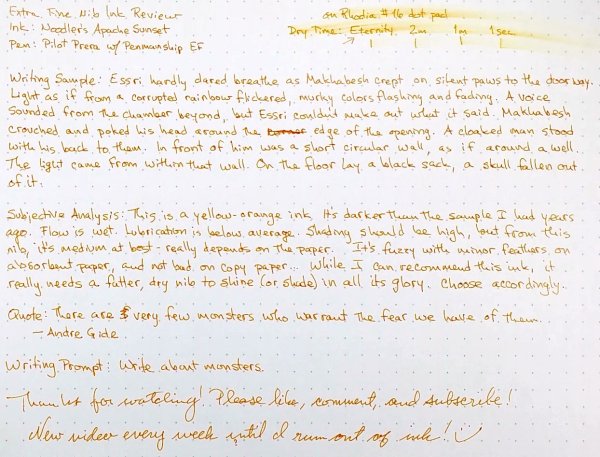 Extra Fine Nib Ink Review
on Rhodia #16 dot pad
Ink: Noodler's Apache Sunset
Dry Time: Eternity 2m 1m 1sec
Pen: Pilot Prera w/ Penmanship EF
Writing Sample: Essri hardly dared breathe as Makhabesh crept on silent paws to the doorway.
Light as if from a corrupted rainbow flickered, murky colors flashing and fading. A voice
sounded from the chamber beyond, but Essri couldn't make out what it said. Makhabesh
crouched and poked his head around the corner edge of the opening. A cloaked man stood
with his back to them. In front of him was a short circular wall, as if around a well.
The light came from within that wall. On the floor lay a black sack, a skull fallen out
of it.
Subjective Analysis: This is a yellow-orange ink. It's darker than the sample I had years
ago. Flow is wet. Lubrication is below average. Shading should be high, but from this
nib, it's medium at best - really depends on the paper. It's fuzzy with minor feathers on
absorbent paper, and not bad on copy paper... While I can recommend this ink, it
really needs a fatter, dry nib to shine (or shade) in all its glory. Choose accordingly.
Quote: There are very few monsters who warrant the fear we have of them.
- Andre Gide
Writing Prompt: Write about monsters.
Thanks for watching! Please like, comment, and subscribe!
New video every week until I run out of ink!